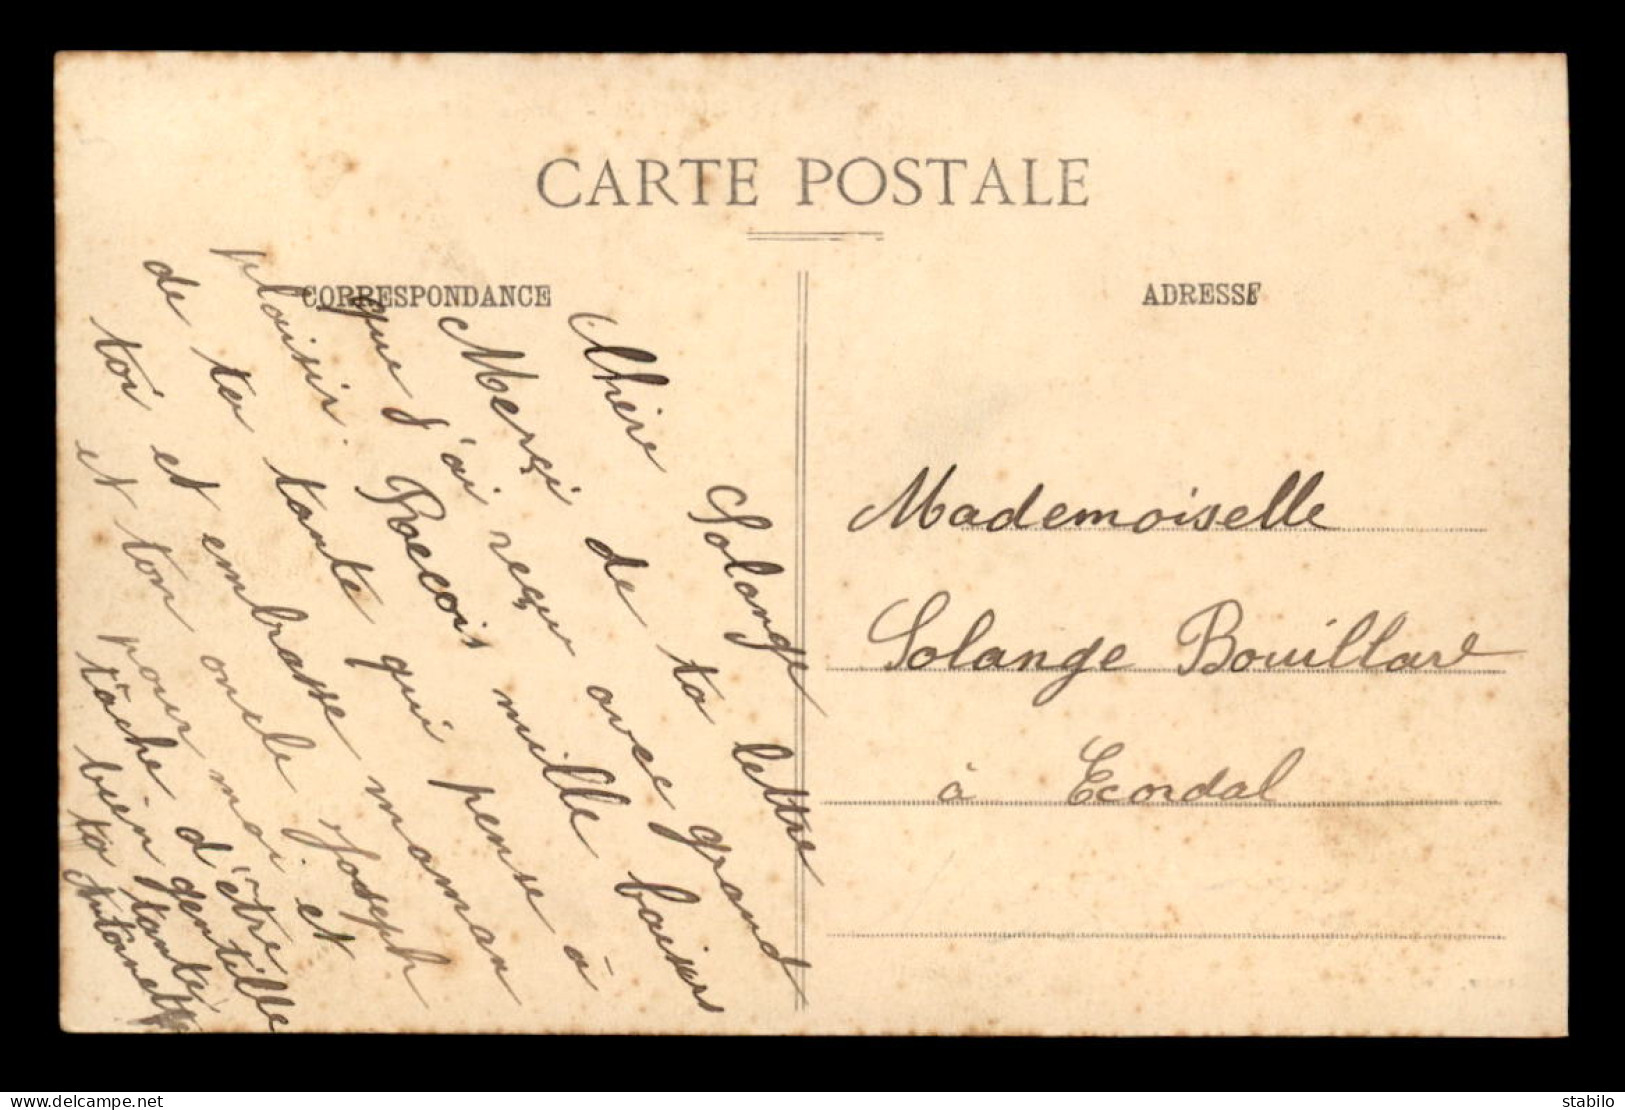 CARTE POSTALE
CORRESPONDANCE
ADRESSE
Chère Solange
Merçi de ta lettre
que j'ai reçu avec grand
plaisir. Recois mille baisers
de ta tante qui pense à
toi et embrasse maman
et ton oncle Joseph
pour moi et
tâche d'être
bien gentille
ta tante
Antonette
Mademoiselle
Solange Bouillard
à Ecordal
www.delcampe.net
stabilo